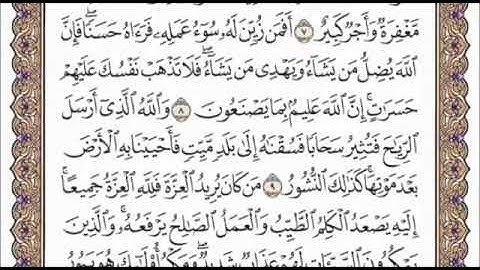 مَّغْفِرَةٌ وَأَجْرٌ كَبِيرٌ ٧ أَفَمَن زُيِّنَ لَهُۥ سُوٓءُ عَمَلِهِۦ فَرَءَاهُ حَسَنًا ۖ فَإِنَّ
ٱللَّهَ يُضِلُّ مَن يَشَآءُ وَيَهْدِى مَن يَشَآءُ ۖ فَلَا تَذْهَبْ نَفْسُكَ عَلَيْهِمْ
حَسَرَٰتٍ ۚ إِنَّ ٱللَّهَ عَلِيمٌۢ بِمَا يَصْنَعُونَ ٨ وَٱللَّهُ ٱلَّذِىٓ أَرْسَلَ
ٱلرِّيَٰحَ فَتُثِيرُ سَحَابًا فَسُقْنَٰهُ إِلَىٰ بَلَدٍ مَّيِّتٍ فَأَحْيَيْنَا بِهِ ٱلْأَرْضَ
بَعْدَ مَوْتِهَا ۚ كَذَٰلِكَ ٱلنُّشُورُ ٩ مَن كَانَ يُرِيدُ ٱلْعِزَّةَ فَلِلَّهِ ٱلْعِزَّةُ جَمِيعًا ۚ
إِلَيْهِ يَصْعَدُ ٱلْكَلِمُ ٱلطَّيِّبُ وَٱلْعَمَلُ ٱلصَّٰلِحُ يَرْفَعُهُۥ ۚ وَٱلَّذِينَ
يَمْكُرُونَ ٱلسَّيِّـَٔاتِ لَهُمْ عَذَابٌ شَدِيدٌ ۖ وَمَكْرُ أُو۟لَٰٓئِكَ هُوَ يَبُورُ